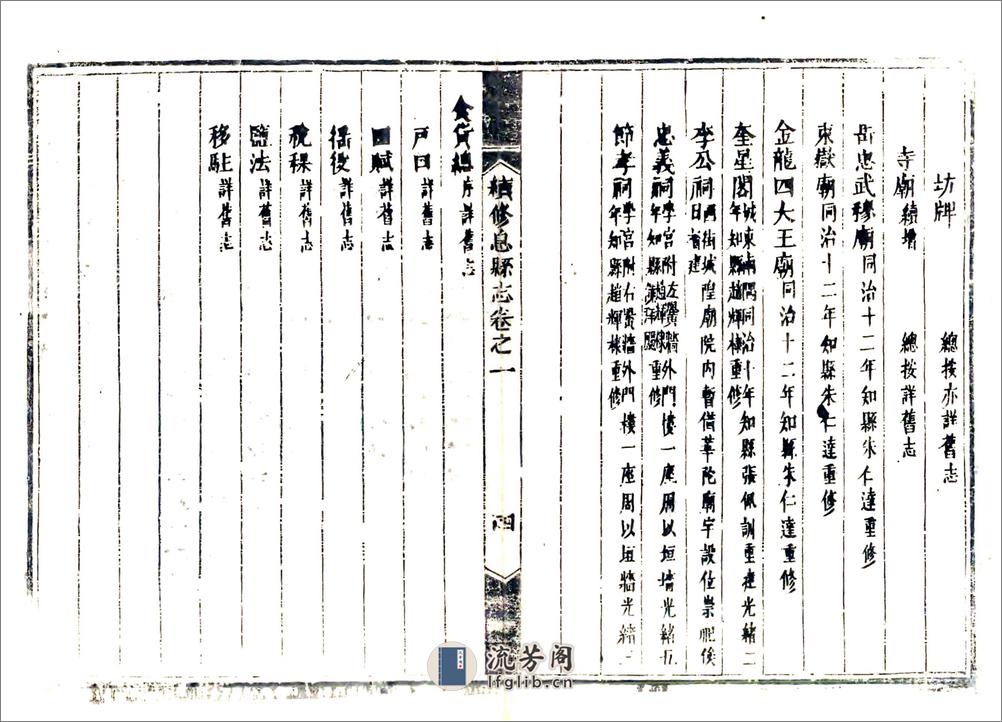 坊牌　總按亦詳舊志
寺廟續增　總按詳舊志
岳忠武穆廟同治十二年知縣朱仁達重修
東嶽廟同治十二年知縣朱仁達重修
金龍四大王廟同治十二年知縣朱仁達重修
奎星閣城東南隅同治十年知縣張佩訓重建光緒二
年知縣趙輝棣重修
李公祠西街城隍廟院內暫借華陀廟宇設位崇祀後
日
忠義祠學宮附左黌牆外門樓一座周以垣墻光緒五
年知縣
節孝祠學宮附右黌牆外門樓一座周以垣牆光緒
年知縣趙輝棣重修
續修息縣志卷之一
四
食貨總序詳舊志
戶口詳舊志
田賦詳舊志
徭役詳舊志
稅稞詳舊志
鹽法詳舊志
移駐詳舊志
流芳阁
lfglib.cn